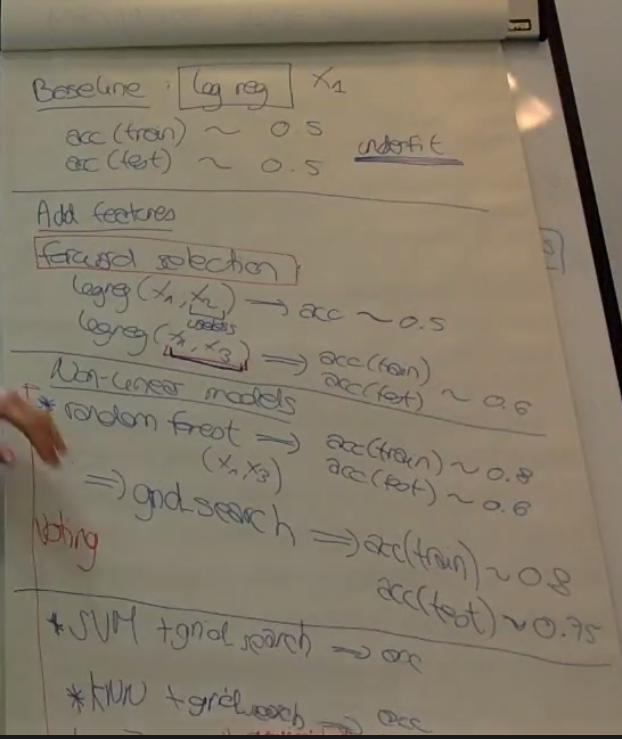 Baseline : log reg X1
acc (train) ~ 0.5
acc (test) ~ 0.5
underfit
Add features
forward selection
logreg (X1, X2) → acc ~ 0.5
useless
logreg (X1, X3) ⇒ acc(train)
acc(test) ~ 0.6
Non-linear models
* random forest ⇒ acc(train) ~ 0.8
(X1, X3) acc(test) ~ 0.6
⇒ grid search ⇒ acc(train) ~ 0.8
acc(test) ~ 0.75
Voting
* SVM + grid search ⇒ acc
* KNN + gridsearch ⇒ acc